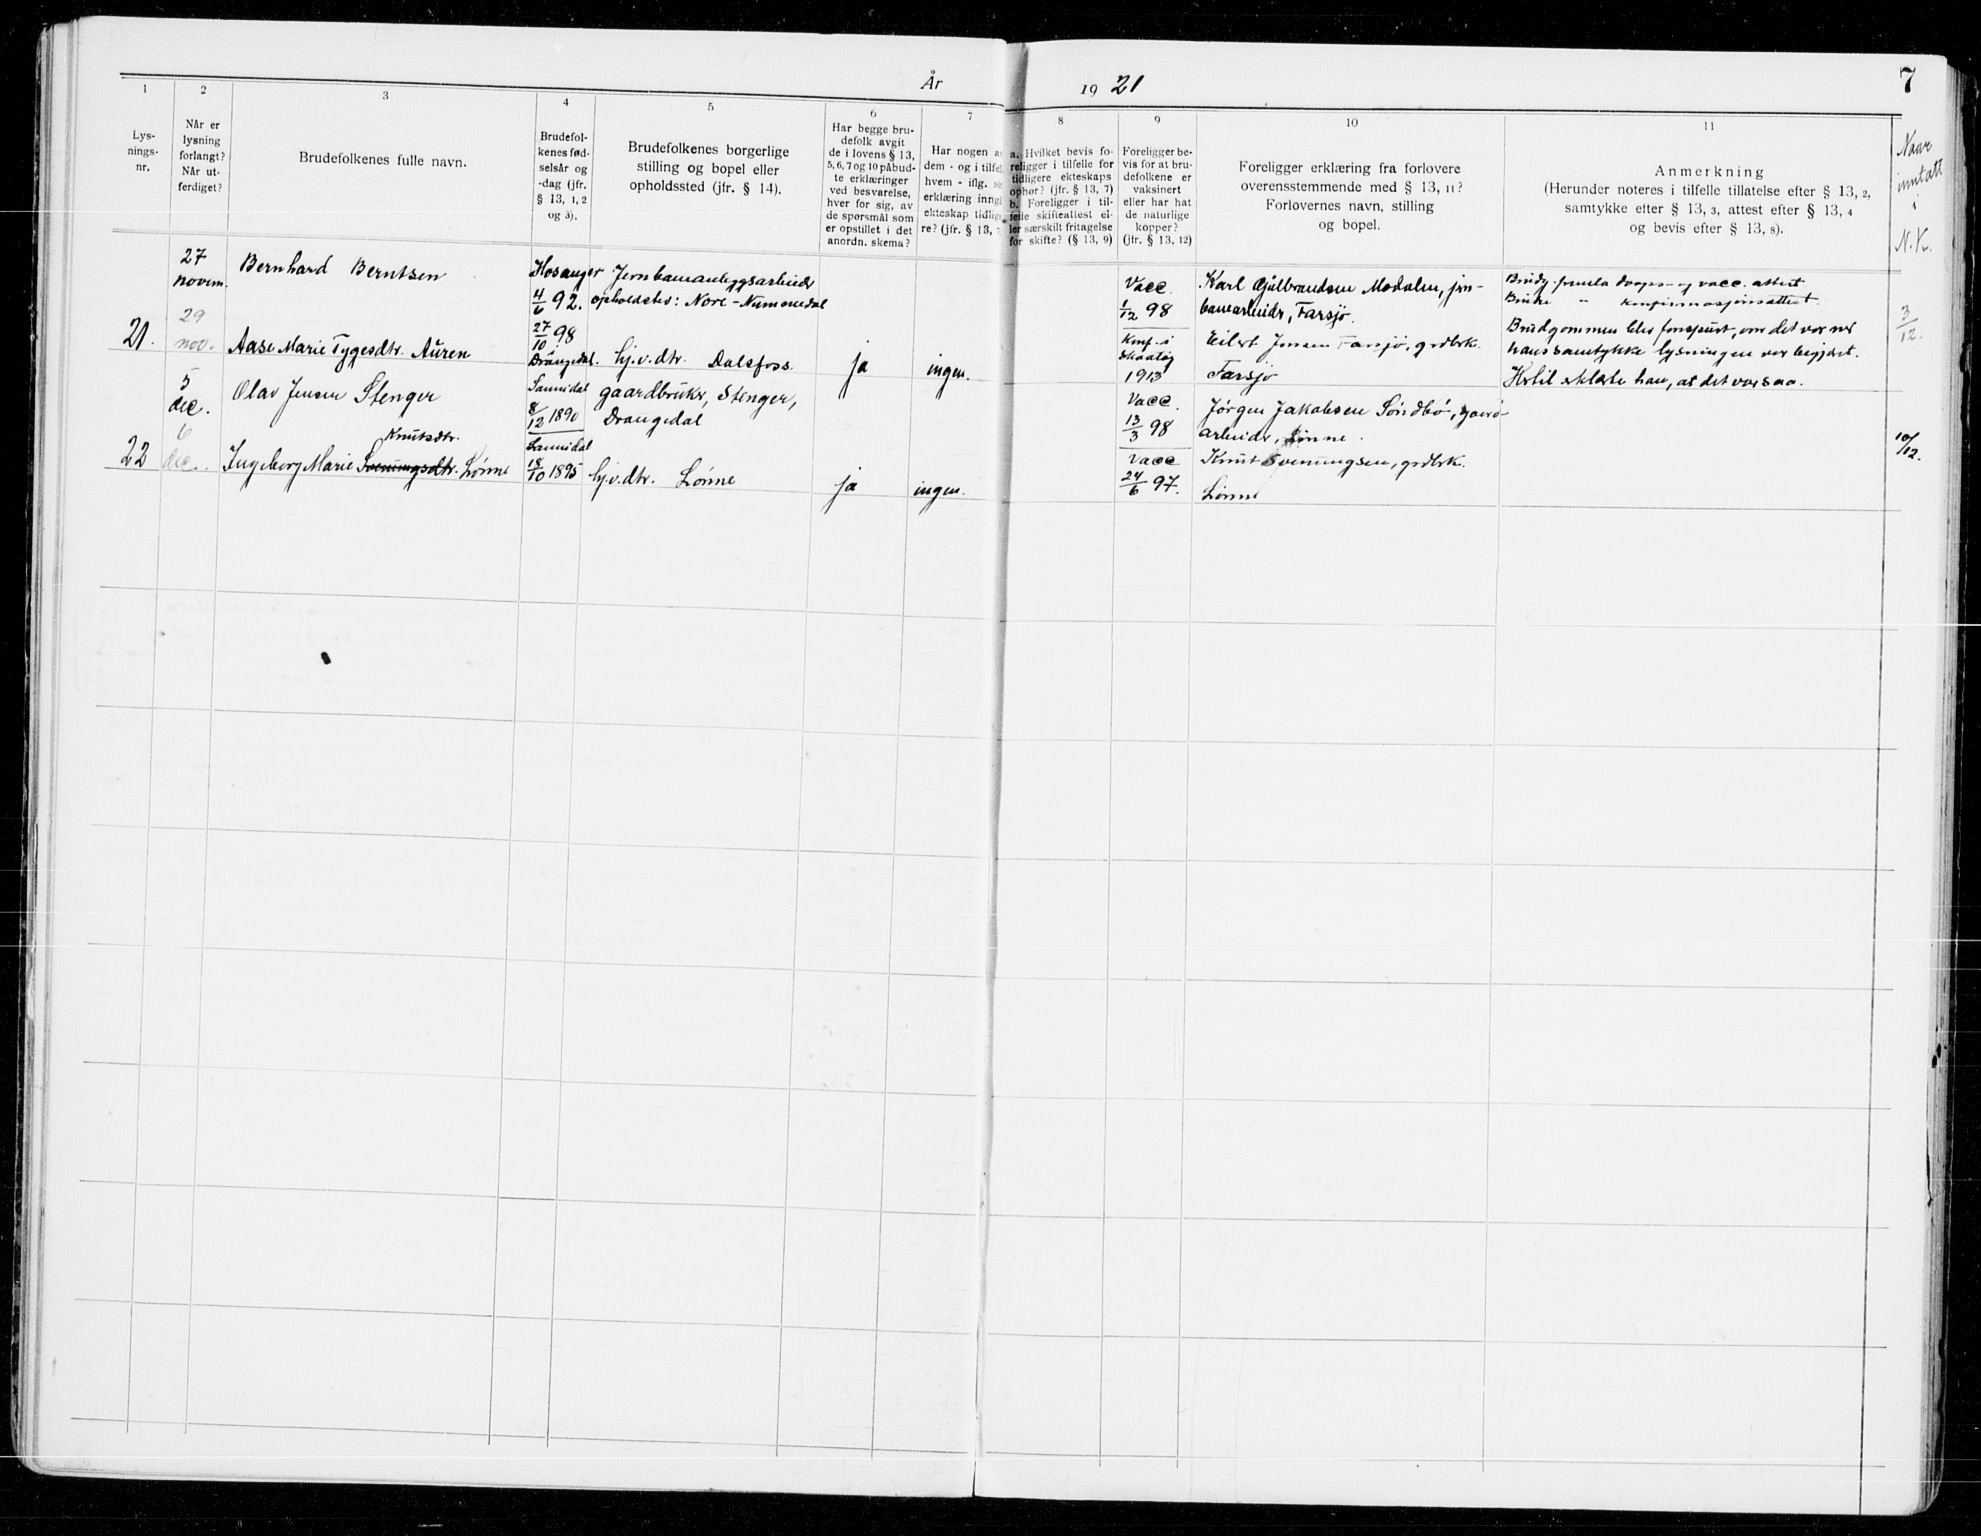 År 1921
7
1
2
3
4
5
6
7
8
9
10
11
Lys-
nings-
nr.
Når er
lysning
forlangt?
Når ut-
ferdiget?
Brudefolkenes fulle navn.
Brudefol-
kenes fød-
selsår og
-dag (jfr.
§ 13, 1, 2
og 3).
Brudefolkenes borgerlige
stilling og bopel eller
opholdssted (jfr. § 14).
Har begge bru-
defolk avgit
de i lovens § 13,
5, 6, 7 og 10 påbud-
te erklæringer
ved besvarelse,
hver for sig, av
de spørsmål som
er opstillet i det
anordn. skema?
Har nogen a
dem - og i tilfel
hvem - iflg. s
erklæring inng
ekteskap tidlig
re? (jfr. § 13, 7
a. Hvilket bevis fo-
religger i tilfelle for
tidligere ekteskaps
ophør? (jfr. § 13, 7)
b. Foreligger i til-
felle skifteattest el-
ler særskilt fritagelse
for skifte? (§ 13, 9)
Foreligger be-
vis for at bru-
defolkene er
vaksinert
eller har hat
de naturlige
kopper?
(jfr. § 13, 12)
Foreligger erklæring fra forlovere
overensstemmende med § 13, 11?
Forlovernes navn, stilling
og bopel.
Anmerkning
(Herunder noteres i tilfelle tillatelse efter § 13, 2,
samtykke efter § 13, 3, attest efter § 13, 4
og bevis efter § 13, 8).
Naar
inntatt
i
N.K.
21.
27
novem.
29
nov.
Bernhard Berntsen
Aase Marie Tygesdtr. Auren
Hosanger
4/6 92.
27/10 98
Drangedal.
Jernbaneanleggsarbeider
opholdsted: Nore - Nummedal
hj.v.dtr. Dalsfoss
ja
ingen.
Vacc.
1/12 98
Konf. i
Skaatøy
1913
Karl Gulbrandsen Modalen, jern-
banearbeider, Farsjø.
Eilert Jensen Farsjø, grdbrk.
Farsjø
Brudg. fremla daaps- og vacc. attest
Bruden " konfirmasjonsattest.
Brudgommen blev forespurt, om det var med
hans samtykke lysningen var begjært.
Hertil erklærte han, at det var saa.
3/12.
22
5
dec.
6
dec.
Olav Jensen Stenger
Knutsdtr.
Ingeborg Marie Svenungsdtr. Lønne
Sannidal
8/12 1890
Sannidal
18/10 1895
gaardbruker, Stenger,
Drangedal
hj.v.dtr. Lønne
ja
ingen.
Vacc.
13/3 98
Vacc
24/6 97.
Jørgen Jakobsen Søndbø, gaard-
arbeider, Lønne.
Knut Svenungsen, grdbrk.
Lønne
10/12.